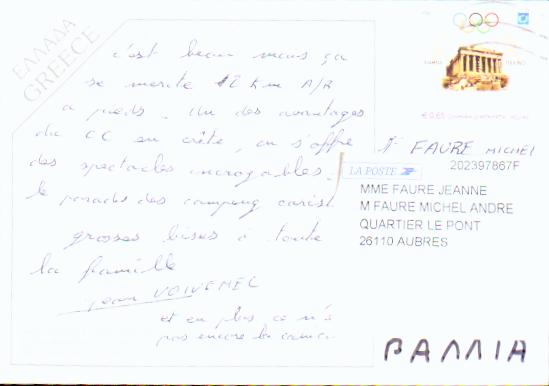 ΕΛΛΑΔΑ
GREECE
c'est beau mais ça
se merite 12 km A/R
a pieds. Un des avantages
du CC en crête, on s'offre
des spectacles incroyables.
le paradis des camping carist
grosses bises à toute
la famille
jean
et en plus ce n'
pas encore la
€0,65
Mr FAURE MICHEL
202397867F
LA POSTE
MME FAURE JEANNE
M FAURE MICHEL ANDRE
QUARTIER LE PONT
26110 AUBRES
ΓΑΛΛΙΑ